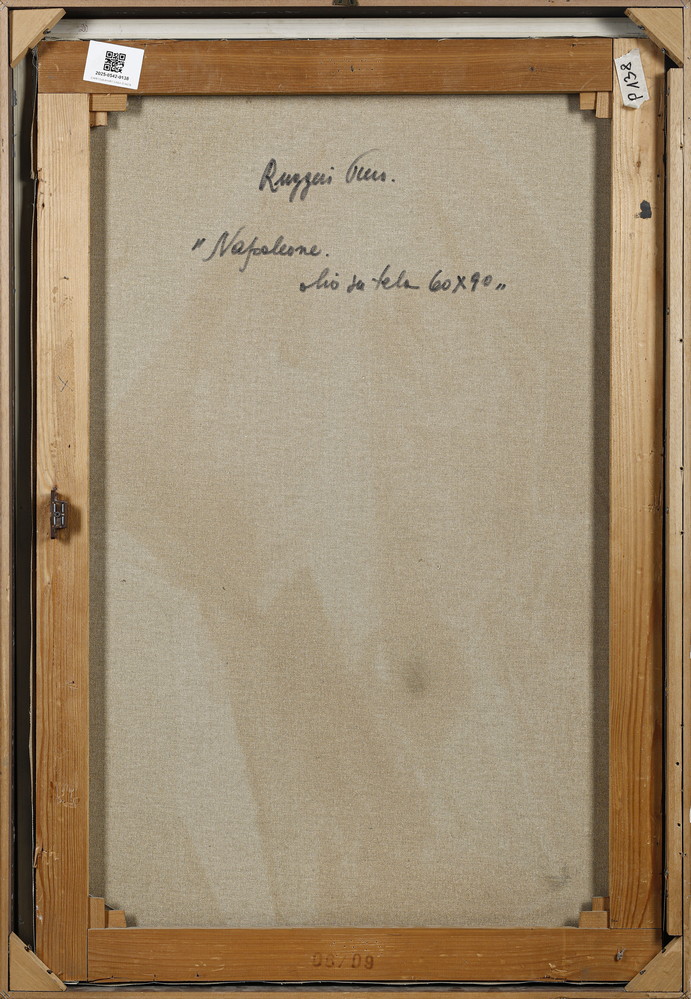 2025-0542-0138
P 138
Ruggeri
"Napoleone.
olio su tela 60x90"